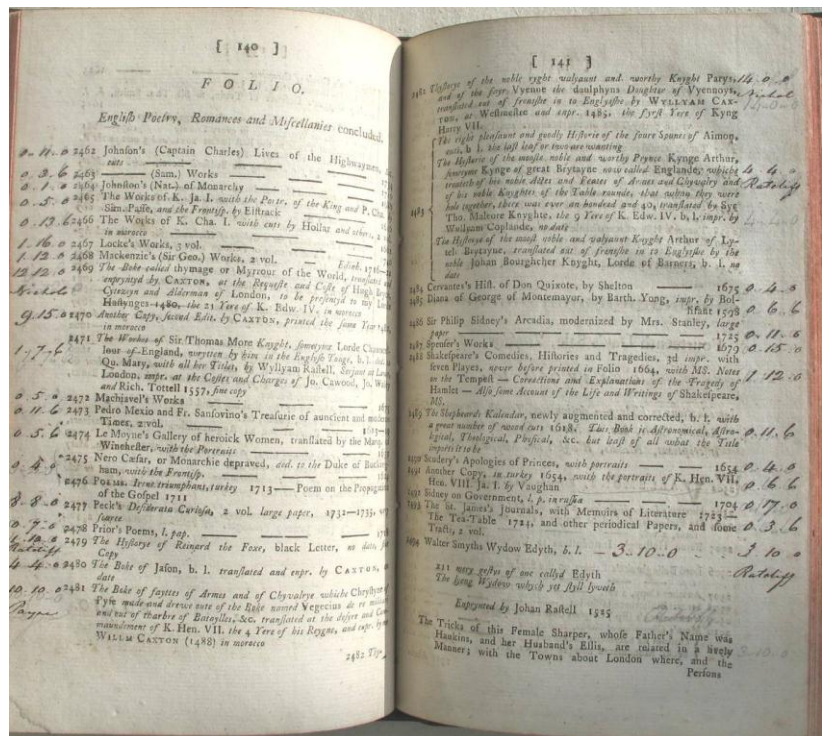 [ 140 ]
FOLIO.
English Poetry, Romances and Miscellanies concluded.
0-11-0 2462 Johnson's (Captain Charles) Lives of the Highwaymen,
cuts
0-3-6 2463 —— (Sam.) Works
0-1-0 2464 Johnston's (Nat.) of Monarchy
0-5-0 2465 The Works of K. Ja. I. with the Portr. of the King and P. Cha.
Sim. Passe, and the Frontisp. by Elstrack
0-13.6 2466 The Works of K. Cha. I. with cuts by Hollar and others, 2 vol.
in morocco
1-16-0 2467 Locke's Works, 3 vol.
1-12-0 2468 Mackenzie's (Sir Geo.) Works, 2 vol. Edinb. 1716
12 12 0 2469 The Boke called thymage or Myrrour of the World, translated and
Nichols enprynted by CAXTON, at the Requeste and Coste of Hugh Bryce,
Cytezeyn and Alderman of London, to be presentyd to my Lord
Hastynges—1480, the 21 Yere of K. Edw. IV. in morocco
9.15.0 2470 Another Copy, second Edit. by CAXTON, printed the same Year
in morocco
2471 The Workes of Sir Thomas More Knyght, sometyme Lorde Chauncel-
1-7-6 lour of England, wrytten by him in the Englysh Tonge, b. l. ded. to
Qu. Mary, with all her Titles, by Wyllyam Rastell, Serjeant at Law
London, impr. at the Costes and Charges of Jo. Cawood, Jo. Waly
and Rich. Tottell 1557, fine copy
0.5.0 2472 Machiavel's Works
0.11.6 2473 Pedro Mexio and Fr. Sansovino's Treasurie of auncient and moderne
Times, 2 vol.
0.5.6 2474 Le Moyne's Gallery of heroick Women, translated by the Marq. of
Winchester, with the Portraits
2475 Nero Cæsar, or Monarchie depraved, ded. to the Duke of Bucking-
ham, with the Frontisp.
2476 Poems. Irene triumphant, turkey 1713 — Poem on the Propagation
of the Gospel 1711
8-8-0 2477 Peck's Desiderata Curiosa, 2 vol. large paper, 1732—1735, very
scarce
0-7-0 2478 Prior's Poems, l. pap.
2479 The Hystorye of Reinard the Foxe, black Letter, no date, fair
Ratcliff Copy
4-4-0 2480 The Boke of Jason, b. l. translated and enpr. by CAXTON, no
date
10-10.0 2481 The Boke of fayttes of Armes and of Chyvalrye whiche Chrystyne of
Payne Pyse made and drewe oute of the Boke named Vegecius de re militari
and out of tharbre of Bataylles, &c. translated at the desire and Com-
maundement of K. Hen. VII. the 4 Yere of his Reygne, and enpr. by me
WILLM CAXTON (1488) in morocco
2482 Thy-
[ 141 ]
2482 Thystorye of the noble ryght valyaunt and worthy Knyght Parys, 14-0-0
and of the fayr Vyenne the daulphyns Doughter of Vyennoys, Nichol
translated out of frensshe in to Englysshe by WYLLYAM CAX-
TON, at Westmestre and enpr. 1485, the fyrst Yere of Kyng
Harry VII.
The right pleasaunt and goodly Historie of the foure Sonnes of Aimon,
cuts, b. l. the last leaf or two are wanting
The Historie of the moste noble and worthy Prynce Kynge Arthur,
sometyme Kynge of great Brytayne now called Englande, whiche 4-4.0
treateth of his noble Actes and Feates of Armes and Chyvalry and Ratcliff
of his noble Knyghtes of the Table rounde, that when they were
hole together, there was ever an hondred and 40, translated by Syr
2483 Tho. Maleore Knyghte, the 9 Yere of K. Edw. IV. b. l. impr. by
Wyllyam Coplande, no date
The Hystorye of the most noble and valyaunt Knyght Arthur of Ly-
tell Brytayne, translated out of frensshe in to Englysshe by the
noble Johan Bourghcher Knyght, Lorde of Barners, b. l. no
date
2484 Cervantes's Hist. of Don Quixote, by Shelton —— 1675 0-4.0
2485 Diana of George of Montemayor, by Barth. Yong, impr. by Bol-
lifant 1598 0-6.6
2486 Sir Philip Sidney's Arcadia, modernized by Mrs. Stanley, large
paper —— 1725 0.11.0
2487 Spenser's Works —— 1679 0-15.0
2488 Shakespeare's Comedies, Histories and Tragedies, 3d impr. with
seven Playes, never before printed in Folio 1664, with MS. Notes
on the Tempest — Corrections and Explanations of the Tragedy of 1-12.0
Hamlet — Also some Account of the Life and Writings of Shakespeare,
MS.
2489 The Shepheards Kalendar, newly augmented and corrected, b. l. with
a great number of wood cuts 1618. This Book is Astronomical, Astro-
logical, Theological, Physical, &c. but least of all what the Title 0.11.6
imports it to be
2490 Scudery's Apologies of Princes, with portraits —— 1654 0-4.0
2491 Another Copy, in turkey 1654, with the portraits of K. Hen.
VIII. Ja. I. by Vaughan 0-6 6
2492 Sidney on Government, l. p. in russia —— 1704 0.17.0
2493 The St. James's Journals, with Memoirs of Literature 1723 —
The Tea-Table 1724, and other periodical Papers, and some 0.3.6
Tracts, 2 vol.
2494 Walter Smyths Wydow Edyth, b. l. — 3-10.0 3 10 0
XII mery gestys of one callyd Edyth Ratcliff
The lyeng Wydow whych yet styll lyveth
Enprynted by Johan Rastell 1525
The Tricks of this Female Sharper, whose Father's Name was
Haukins, and her Husband's Ellis, are related in a lively
Manner; with the Towns about London where, and the
Persons